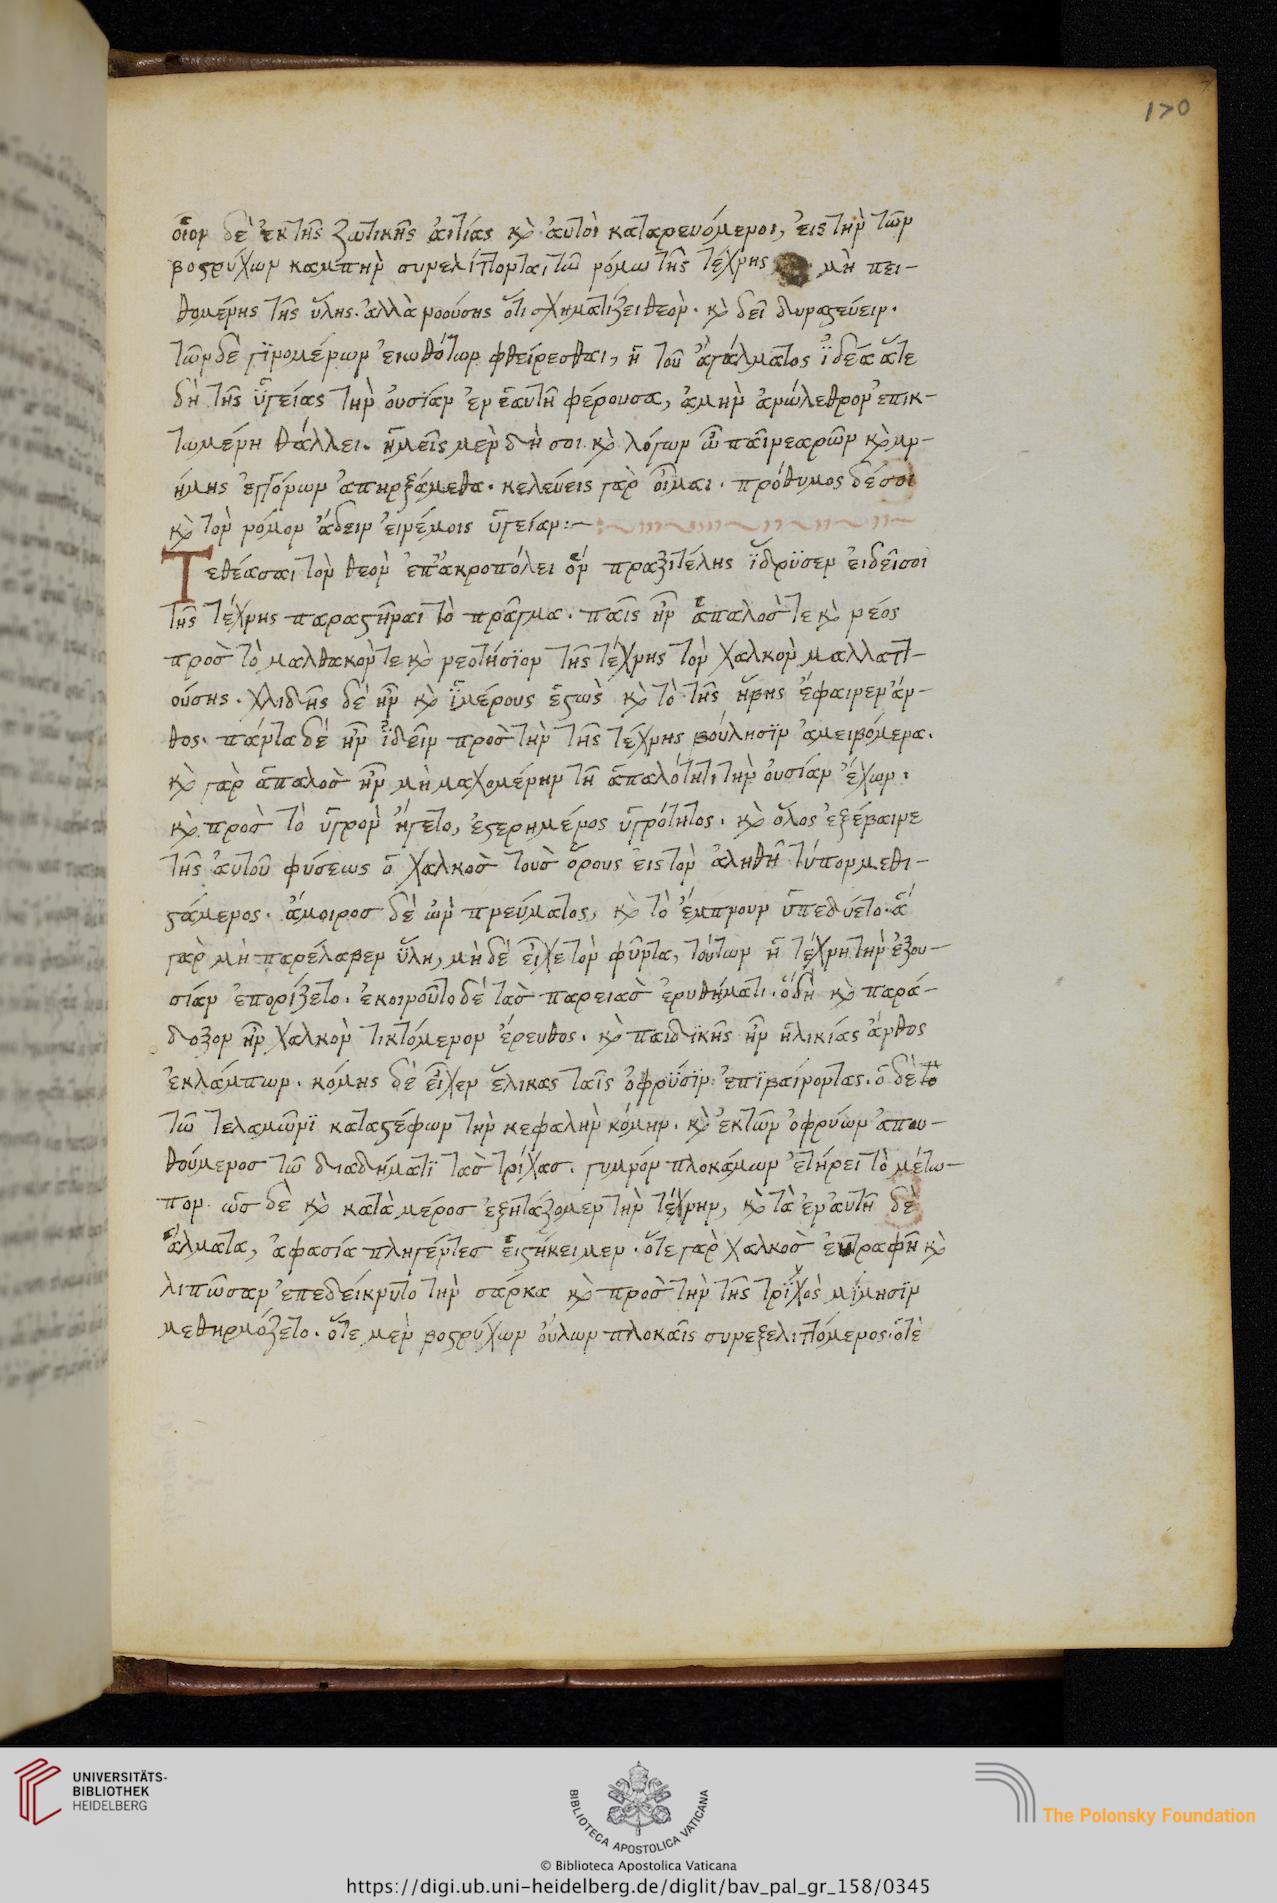 170
οἷον δὲ ἐκ τῆς ζωτικῆς αἰτίας κὶ αὐτοὶ καταρευόμενοι, εἰς τὴν τῶν
βοστρύχων καμπὴν συνελίττονται τῶ νόμω τῆς τέχνης μὴ πει-
θομένης τῆς ὕλης. ἀλλὰ νοούσης ὅτι σχηματίζει θεὸν. κὶ δεῖ δυναστεύειν.
τῶν δὲ γϊνομένων εἰωθότων φθείρεσθαι, ἡ τοῦ ἀγάλματος ϊδέα ἅτε
δὴ τῆς ὑγείας τὴν οὐσίαν ἐν ἑαυτῆ φέρουσα, ἀμὴν ἀνώλεθρον ἐπικ-
τωμένη θάλλει. ἡμεῖς μὲν δή σοι κὶ λόγων ὦ παῖ νεαρῶν κὶ μν-
ήμης ἐγγόνων ἀπηρξάμεθα. κελεύεις γὰρ οἶμαι. πρόθυμος δέ σοι
κὶ τὸν νόμον ἄδειν εἰ νέμοις ὑγείαν:–
Τεθέασαι τὸν θεὸν ἐπ' ἀκροπόλει ὃν πραξιτέλης ϊδρϋσεν εἰ δεῖ σοι
τῆς τέχνης παραστῆναι τὸ πρᾶγμα. παῖς ἦν ἁπαλοσ τε κὶ νέος
προσ τὸ μαλθακὸν τε κὶ νεοτήσϊον τῆς τέχνης τὸν χαλκὸν μαλλαττ-
ούσης. χλιδῆς δὲ ἦν κὶ ϊμέρους ἑστὼς κὶ τὸ τῆς ἥβης ἔφαινεν ἄν-
θος. πάντα δὲ ἦν ϊδεῖν προσ τὴν τῆς τέχνης βούλησϊν ἀμειβόμενα.
κὶ γὰρ ἁπαλοσ ἦν μὴ μαχομένην τῆ ἁπαλότητι τὴν οὐσίαν ἔχων.
κὶ προσ τὸ ὑγρὸν ἤγετο, ἐστερημένος ὑγρότητος. κὶ ὅλος ἐξέβαινε
τῆς αὐτοῦ φύσεως ὁ χαλκοσ τουσ ὅρους εἰς τὸν ἀληθῆ τύπον μεθι-
στάμενος. ἄμοιροσ δὲ ὢν πνεύματος, κὶ τὸ ἔμπνουν ὑπεδύετο. ἃ
γὰρ μὴ παρέλαβεν ὕλη, μὴ δὲ εἶχε τὸν φῦντα, τούτων ἡ τέχνη τὴν ἐξου-
σίαν ἐπορίζετο. ἐκοινοῦτο δὲ τασ παρειασ ἐρυθήματι. ὃ δὴ κὶ παρά-
δοξον ἦν χαλκὸν τικτόμενον ἔρευθος. κὶ παιδϊκῆς ἦν ἡλικίας ἄνθος
ἐκλάμπων. κόμης δὲ εἶχεν ἕλικας ταῖς ὀφρύσϊν ἐπϊβαίνοντας. ὁ δὲ το
τῶ τελαμῶνϊ καταστέφων τὴν κεφαλὴν κόμην. κὶ ἐκ τῶν ὀφρύων ἀπου-
θούμενοσ τῶ διαδήματϊ τασ τρίχασ. γυμνόν πλοκάμων ἐτήρει τὸ μέτω-
πον. ὡσ δὲ κὶ κατὰ μέροσ ἐξητάζομεν τὴν τέχνην, κὶ τὰ ἐν αὐτῆ δὲ
ἅλματα, ἀφασία πληγέντεσ εἱστήκειμεν. ὅτε γὰρ χαλκοσ ἐντραφῆ κὶ
λιπῶσαν ἐπεδείκνυτο τὴν σάρκα κὶ προσ τὴν τῆς τρϊχὸς μίμησϊν
μεθηρμόζετο. ὅτε μὲν βοστρύχων οὔλων πλοκαῖς συνεξελιττόμενος. ὁτὲ
UNIVERSITÄTS-
BIBLIOTHEK
HEIDELBERG
BIBLIOTECA APOSTOLICA VATICANA
The Polonsky Foundation
© Biblioteca Apostolica Vaticana
https://digi.ub.uni-heidelberg.de/diglit/bav_pal_gr_158/0345